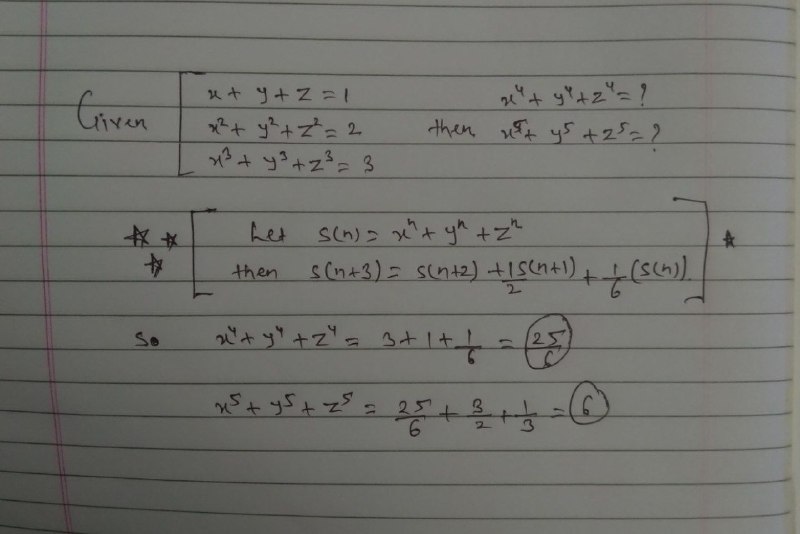 Given x + y + z = 1
x² + y² + z² = 2
x³ + y³ + z³ = 3
then x⁴ + y⁴ + z⁴ = ?
x⁵ + y⁵ + z⁵ = ?
Let s(n) = xⁿ + yⁿ + zⁿ
then s(n+3) = s(n+2) + 1/2 s(n+1) + 1/6 (s(n))
So x⁴ + y⁴ + z⁴ = 3 + 1 + 1/6 = 25/6
x⁵ + y⁵ + z⁵ = 25/6 + 3/2 + 1/3 = 6